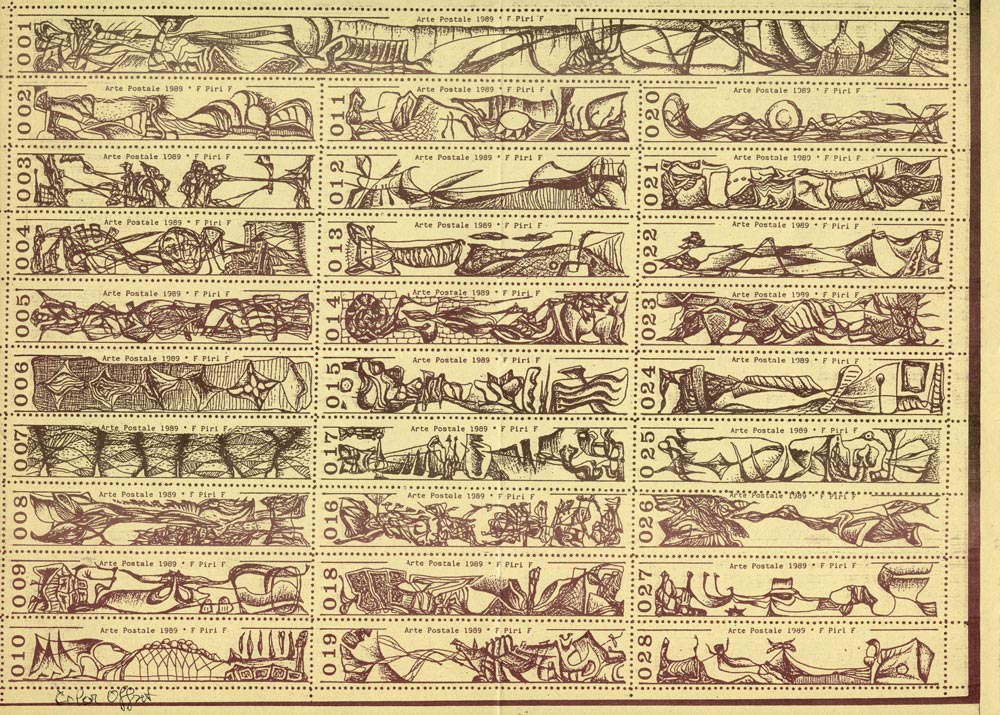 001 Arte Postale 1989 * F Piri F
002 Arte Postale 1989 * F Piri F
011 Arte Postale 1989 * F Piri F
020 Arte Postale 1989 * F Piri F
003 Arte Postale 1989 * F Piri F
012 Arte Postale 1989 * F Piri F
021 Arte Postale 1989 * F Piri F
004 Arte Postale 1989 * F Piri F
013 Arte Postale 1989 * F Piri F
022 Arte Postale 1989 * F Piri F
005 Arte Postale 1989 * F Piri F
014 Arte Postale 1989 * F Piri F
023 Arte Postale 1989 * F Piri F
006 Arte Postale 1989 * F Piri F
015 Arte Postale 1989 * F Piri F
024 Arte Postale 1989 * F Piri F
007 Arte Postale 1989 * F Piri F
017 Arte Postale 1989 * F Piri F
025 Arte Postale 1989 * F Piri F
008 Arte Postale 1989 * F Piri F
016 Arte Postale 1989 * F Piri F
026 Arte Postale 1989 * F Piri F
009 Arte Postale 1989 * F Piri F
018 Arte Postale 1989 * F Piri F
027 Arte Postale 1989 * F Piri F
010 Arte Postale 1989 * F Piri F
019 Arte Postale 1989 * F Piri F
028 Arte Postale 1989 * F Piri F
Error Offset